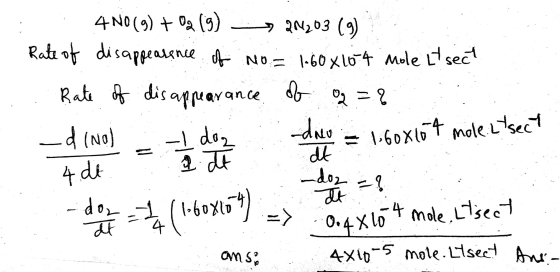 4NO(g) + O2(g) ⟶ 2N2O3(g)
Rate of disappearence of NO = 1.60×10-4 Mole L-1 sec-1
Rate of disappearance of O2 = ?
-d(NO)/4dt = -1/1 dO2/dt    -dNO/dt = 1.60×10-4 mole.L-1sec-1
-dO2/dt = ?
-dO2/dt = -1/4 (1.60×10-4) => 0.4×10-4 mole.L-1sec-1
ans: 4×10-5 mole.L-1sec-1 Ans:-